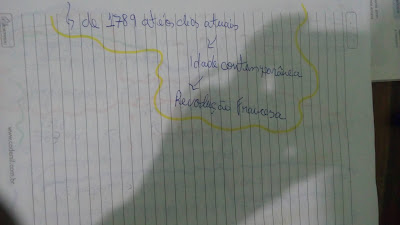 ↳ de 1789 até os dias atuais
Idade contemporânea
Revolução Francesa